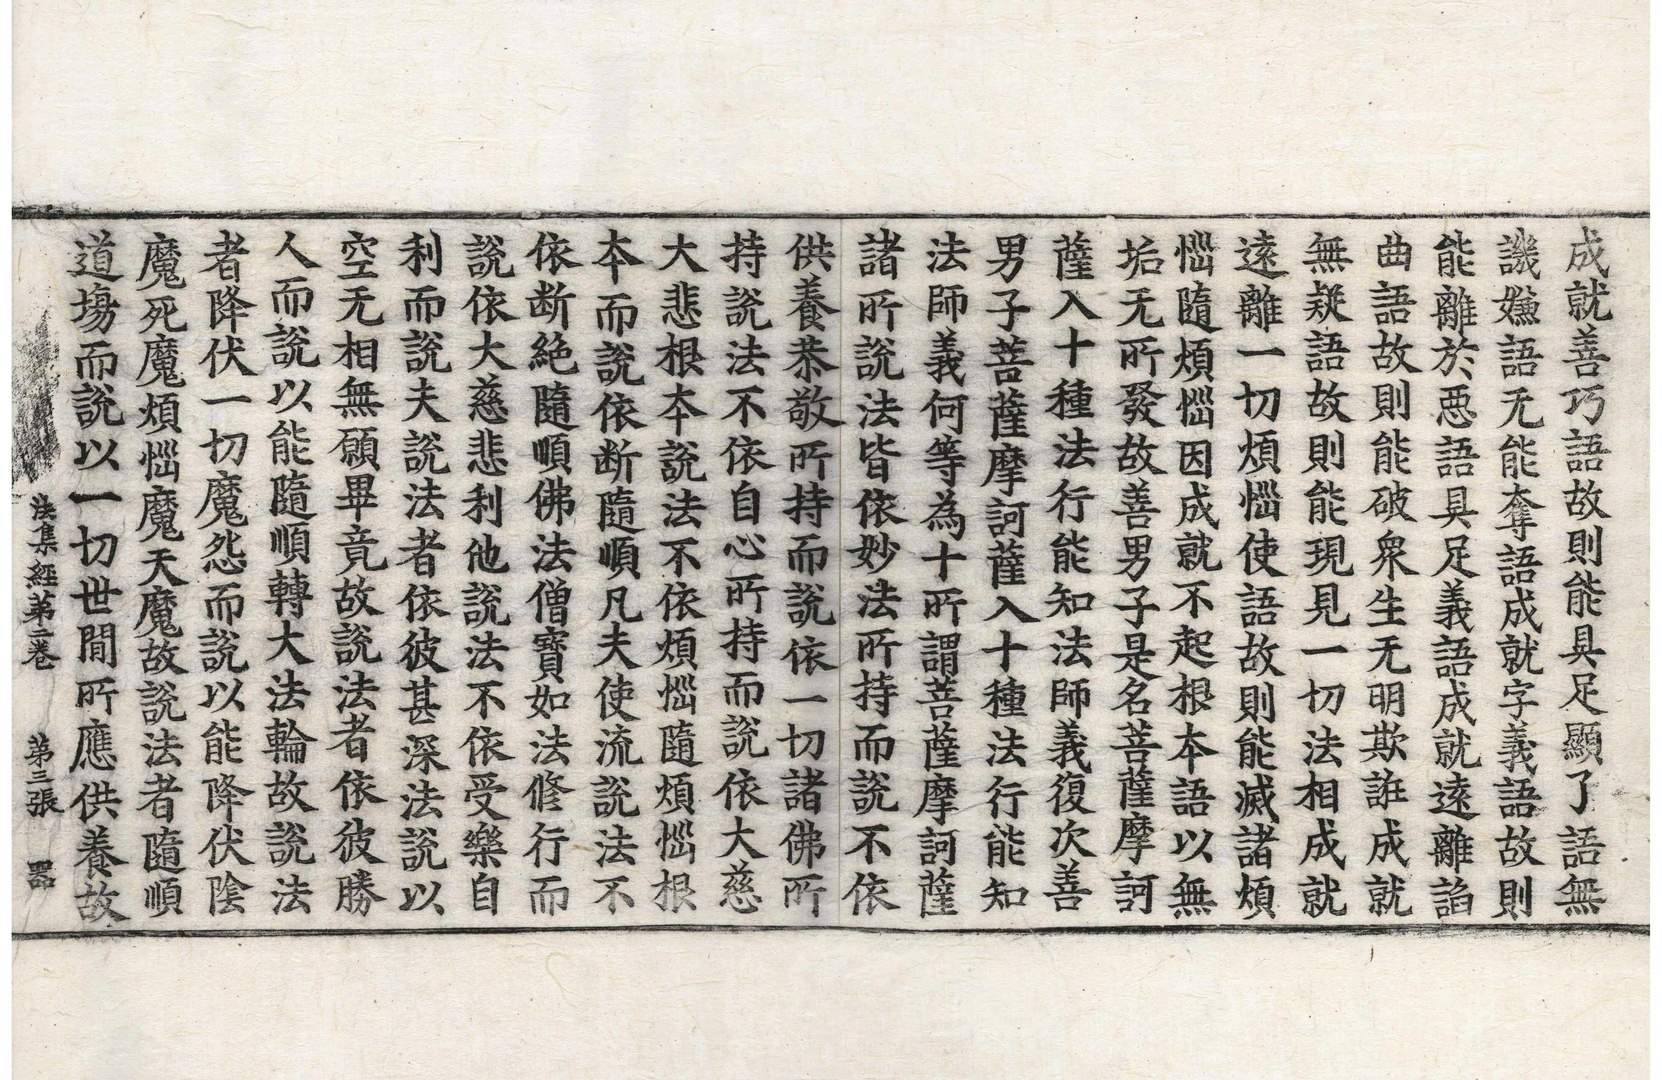 成就善巧語故則能具足顯了語無
譏嫌語无能奪語成就字義語故則
能離於惡語具足義語成就遠離諂
曲語故則能破衆生无明欺誑成就
無疑語故則能現見一切法相成就
遠離一切煩惱使語故則能滅諸煩
惱隨煩惱因成就不起根本語以無
垢无所發故善男子是名菩薩摩訶
薩入十種法行能知法師義復次善
男子菩薩摩訶薩入十種法行能知
法師義何等為十所謂菩薩摩訶薩
諸所說法皆依妙法所持而說不依
供養恭敬所持而說依一切諸佛所
持說法不依自心所持而說依大慈
大悲根本說法不依煩惱隨煩惱根
本而說依断隨順凡夫使流說法不
依断絕隨順佛法僧寶如法修行而
說依大慈悲利他說法不依受樂自
利而說夫說法者依彼甚深法說以
空无相無願畢竟故說法者依彼勝
人而說以能隨順轉大法輪故說法
者降伏一切魔怨而說以能降伏陰
魔死魔煩惱魔天魔故說法者隨順
道場而說以一切世間所應供養故
法集經第二卷 第三張 器